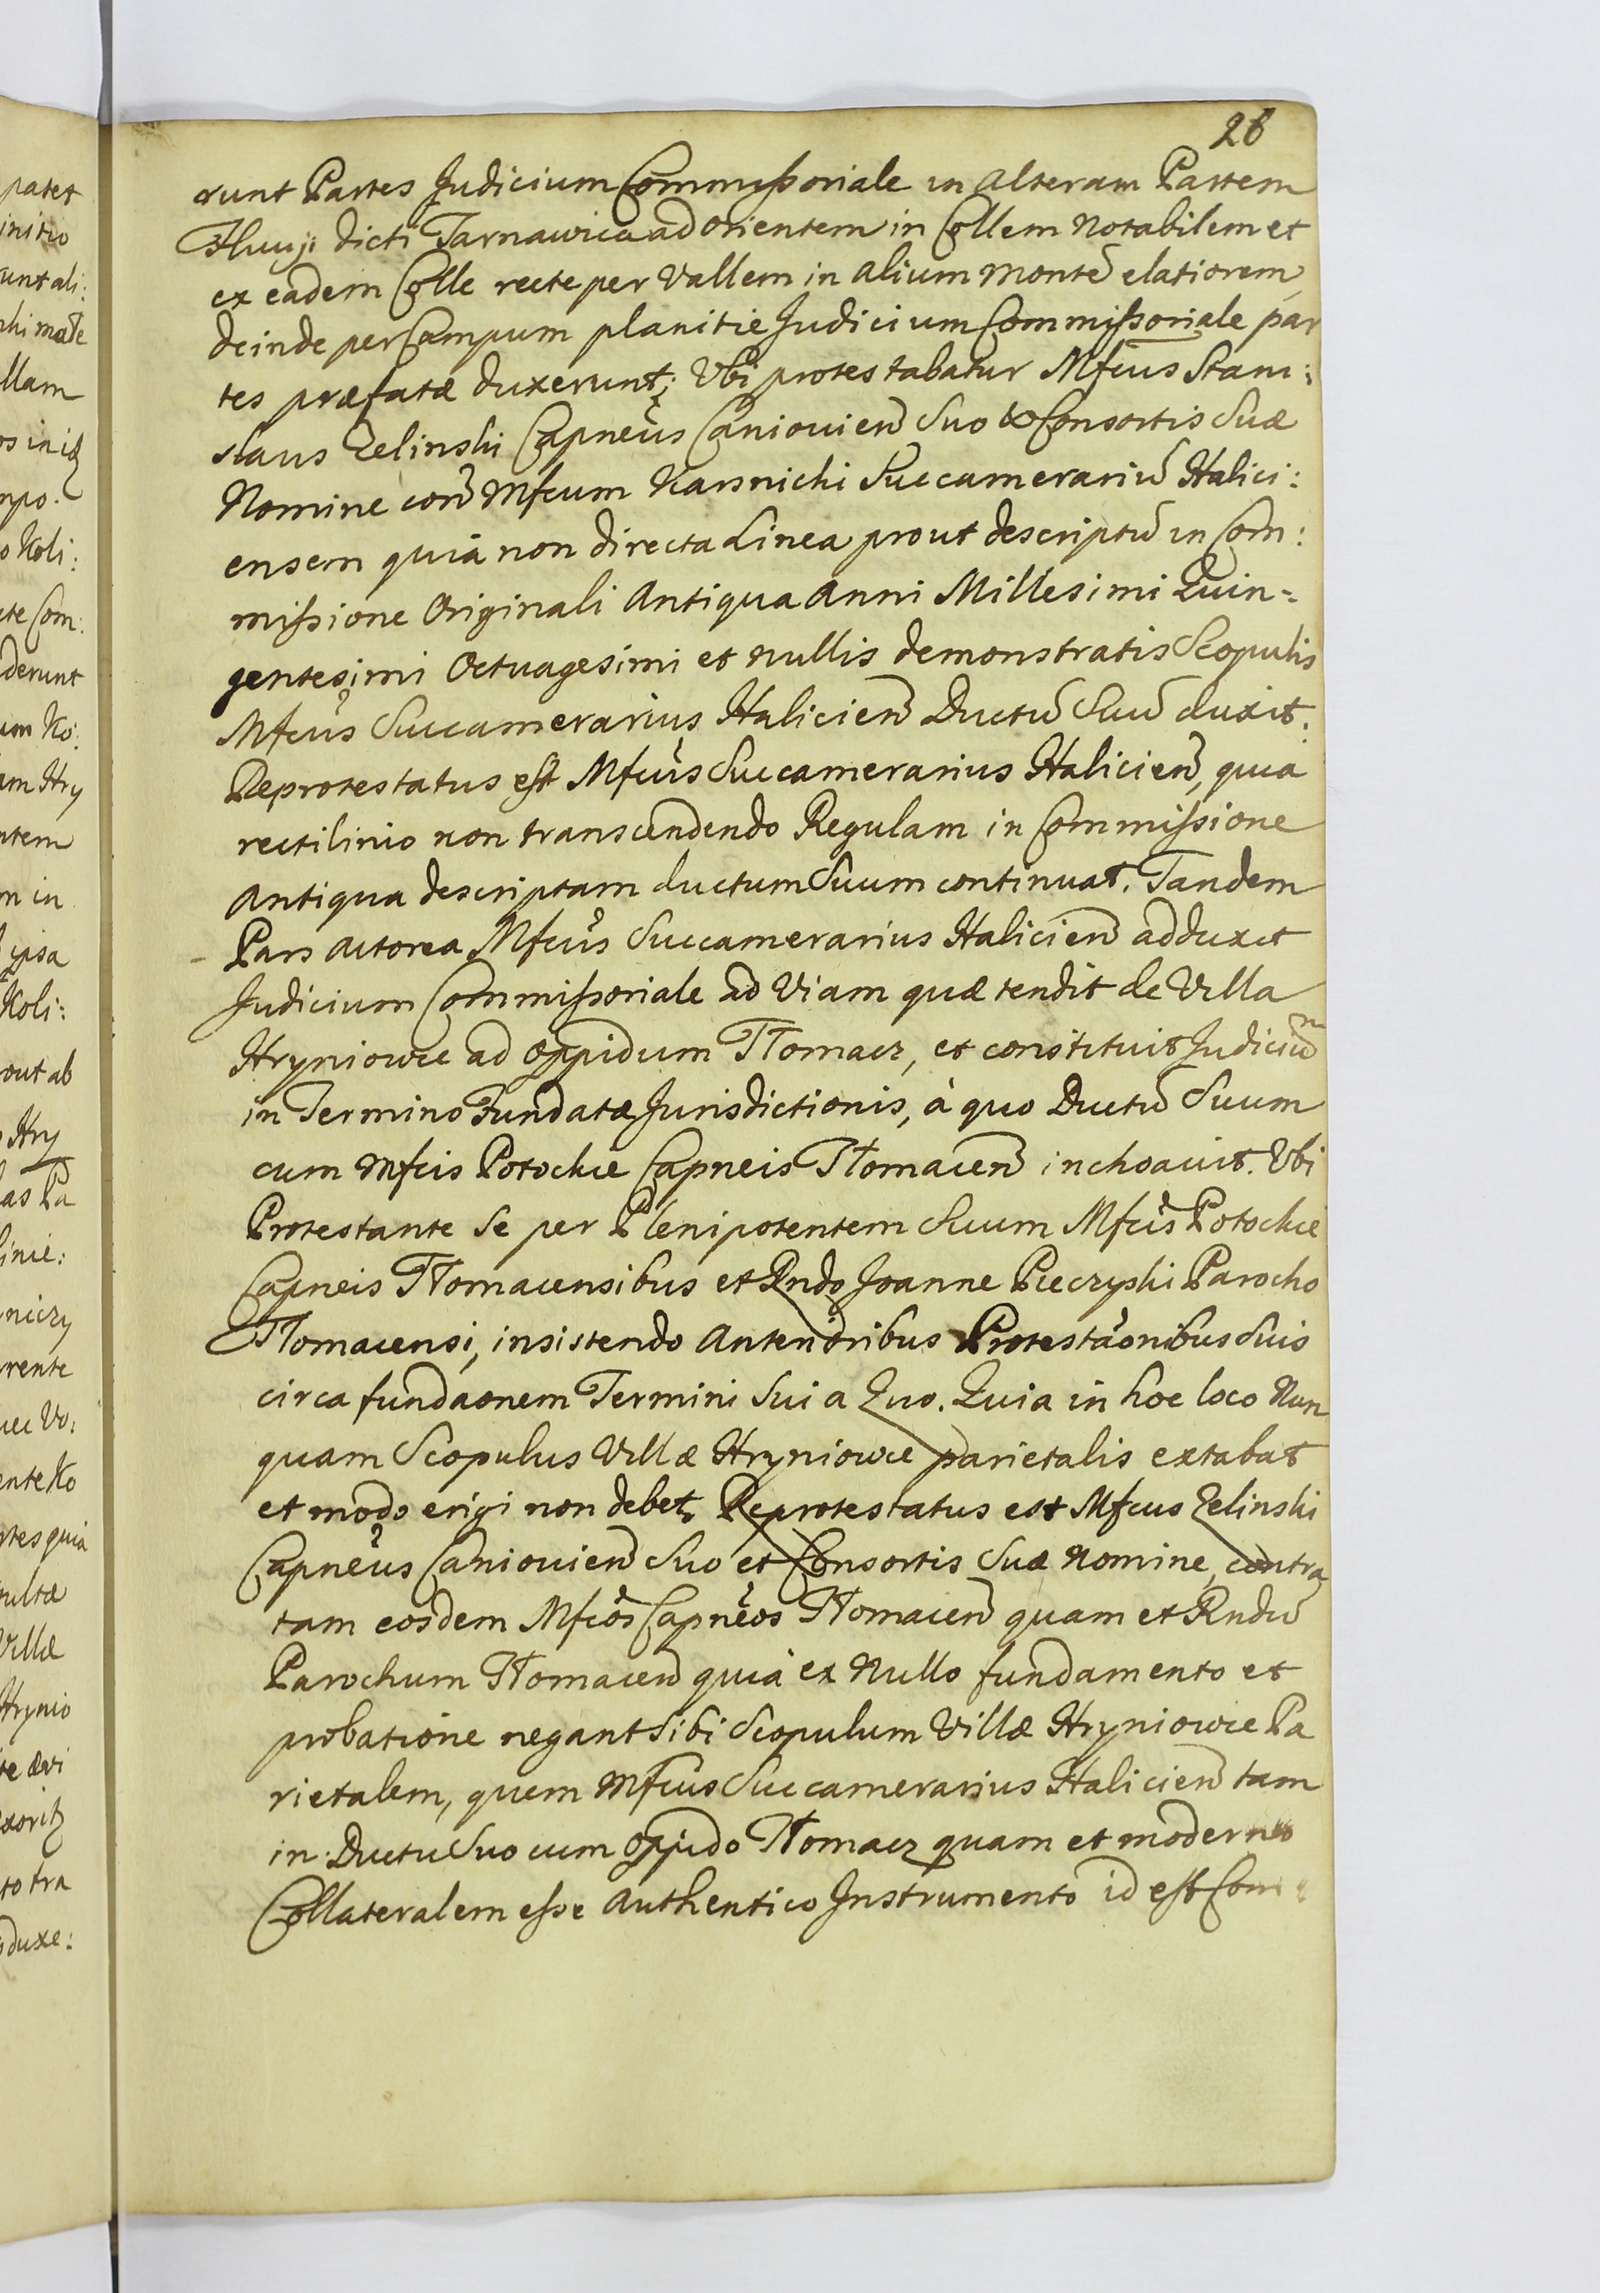 26
runt Partes Judicium Commissoriale in Alteram Partem
Fluuji dicti Tarnawica ad Orientem in Collem Notabilem et
ex eadem Colle recte per Vallem in Alium Montẽ elatiorem,
deinde per Campum planitie Judicium Commissoriale par
tes præfatæ duxerunt; Vbi protestabatur Mfcus Stani:
slaus Zelinski Capneus Caniouieñ Suo & Consortis Suæ
Nomine coñ Mfcum Karsnicki Succamerariũ Halici:
ensem quià non directa Linea prout descriptũ in Com:
missione Originali Antiqua Anni Millesimi Quin-
gentesimi Octuagesimi et nullis demonstratis Scopulis
Mfcus Succamerarius Halicieñ Ductũ Suũ duxit.
Reprotestatus est Mfcus Succamerarius Halicieñ, quia
rectilinio non transcendendo Regulam in Commissione
Antiqua descriptam ductum Suum continuat. Tandem
Pars Actorea Mfcus Succamerarius Halicieñ adduxit
Judicium Commissoriale ad Viam quæ tendit de Villa
Hryniowce ad Oppidum Tłomacz, et constituit Judiciũ
in Termino Fundatæ Jurisdictionis, à quo Ductũ Suum
cum Mfcis Potockie Capneis Tłomacieñ inchoauit. Vbi
Protestante Se per Plenipotentem Suum Mfcis Potockie
Capneis Tłomacensibus et Rndo Joanne Pieczyski Parocho
Tłomacensi, insistendo Anterioribus Protestaonibus Suis
circa fundaonem Termini Sui a Quo. Quia in hoc loco Nun
quam Scopulus Villæ Hryniowce parietalis extabat
et modo erigi non debet. Reprotestatus est Mfcus Zelinski
Capneus Caniouieñ Suo et Consortis Suæ Nomine, contra
tam eosdem Mfcos Capneos Tłomacieñ quam et Rndũ
Parochum Tłomacieñ quià ex Nullo fundamento et
probatione negant Sibi Scopulum Villæ Hryniowce Pa
rietalem, quem Mfcus Succamerarius Halicieñ tam
in Ductu Suo cum Oppido Tłomacz quam et moderno
Collateralem esse Authentico Instrumento id est Com